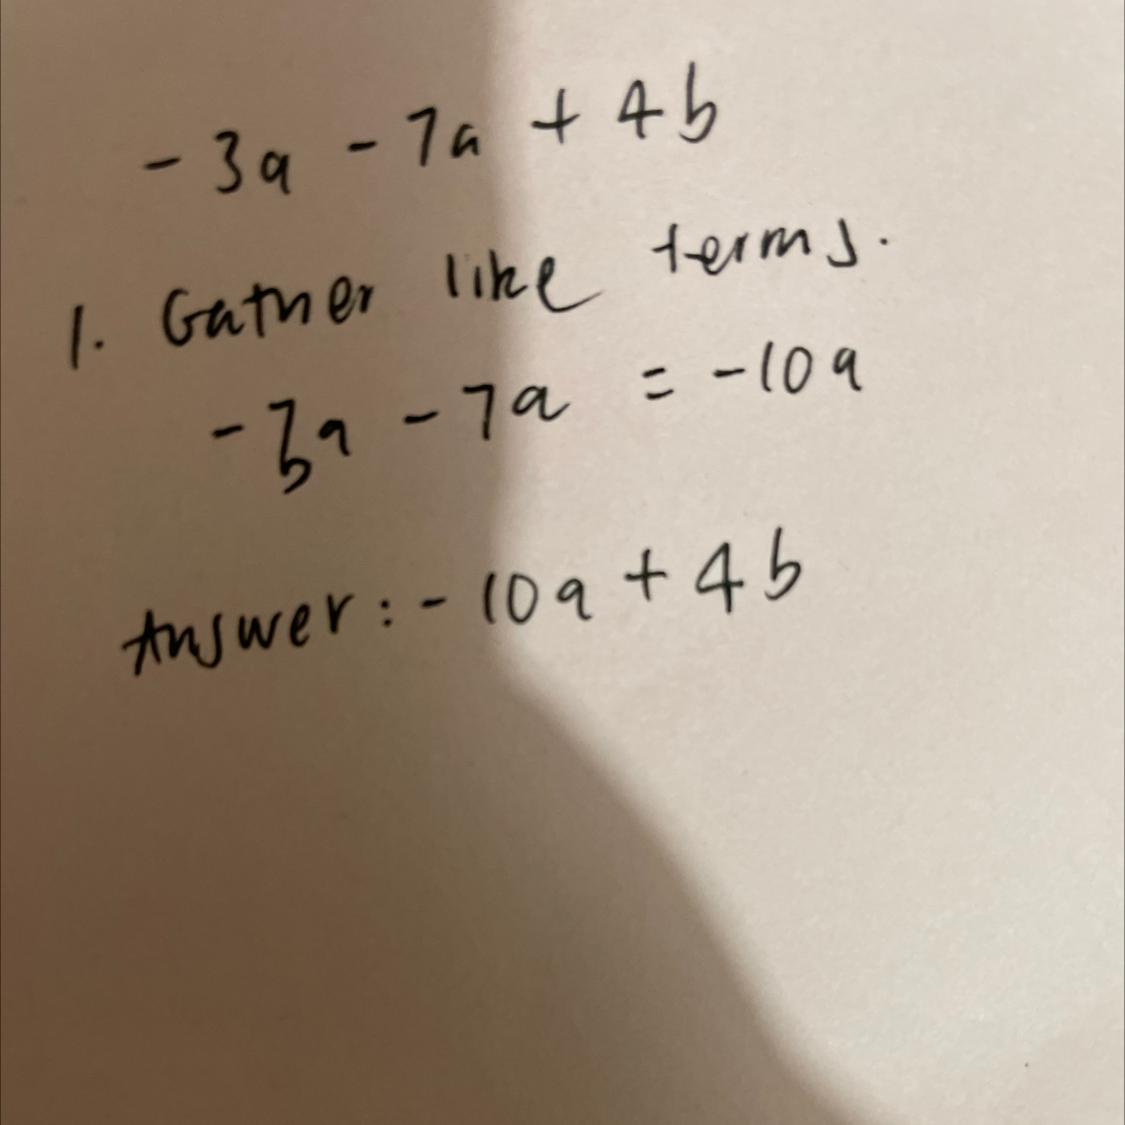 -3a -7a + 4b
1. Gather like terms.
-3a - 7a = -10a
Answer: -10a + 4b